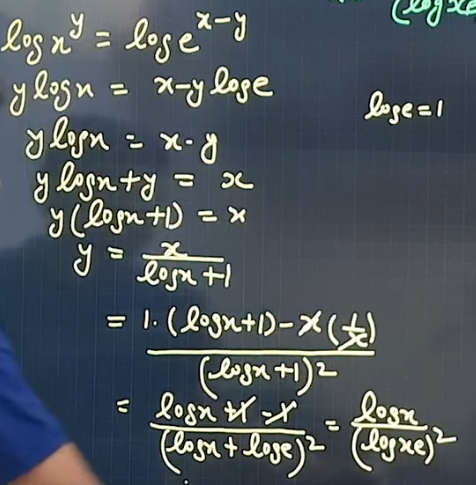 (log xe
log x^y = log e^{x-y}
y log x = x-y log e
log e = 1
y log x = x-y
y log x + y = x
y(log x+1) = x
y = x/(log x+1)
= (1·(log x+1) - x(1/x))/(log x+1)^2
= (log x + 1 - 1)/(log x + log e)^2 = log x/(log xe)^2